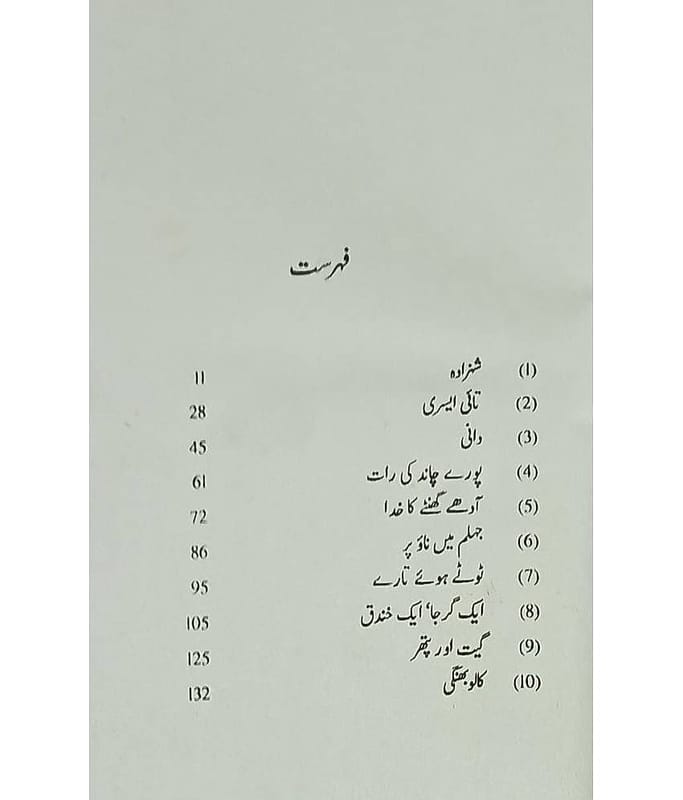 فہرست
(1) شہزادہ 11
(2) تائی ایسری 28
(3) دانی 45
(4) پورے چاند کی رات 61
(5) آدھے گھنٹے کا خدا 72
(6) جہلم میں ناؤ پر 86
(7) ٹوٹے ہوئے تارے 95
(8) ایک گرجا، ایک خندق 105
(9) گیت اور پتھر 125
(10) کالو بھنگی 132